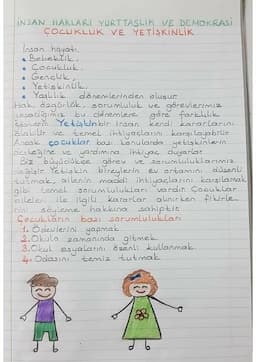 İNSAN HAKLARI YURTTAŞLIK VE DEMOKRASİ
ÇOCUKLUK VE YETİŞKİNLİK
İnsan hayatı,
• Bebeklik,
• Çocukluk,
• Gençlik,
• Yetişkinlik,
• Yaşlılık dönemlerinden oluşur.
Hak, özgürlük, sorumluluk ve görevlerimiz
yaşadığımız bu dönemlere göre farklılık
gösterir. Yetişkin bir insan kendi kararlarını
alabilir ve temel ihtiyaçlarını karşılayabilir.
Ancak çocuklar bazı konularda yetişkinlerin
desteğine ve yardımına ihtiyaç duyarlar.
Biz büyüdükçe görev ve sorumluluklarımız
değişir. Yetişkin bireylerin ev ortamını düzenli
tutmak, ailenin maddi ihtiyaçlarını karşılamak
gibi temel sorumlulukları vardır. Çocuklar
aileleri ile ilgili kararlar alınırken fikirle-
rini söyleme hakkına sahiptir.
Çocukların bazı sorumlulukları
1. Ödevlerini yapmak
2. Okula zamanında gitmek
3. Okul eşyalarını özenli kullanmak
4. Odasını temiz tutmak